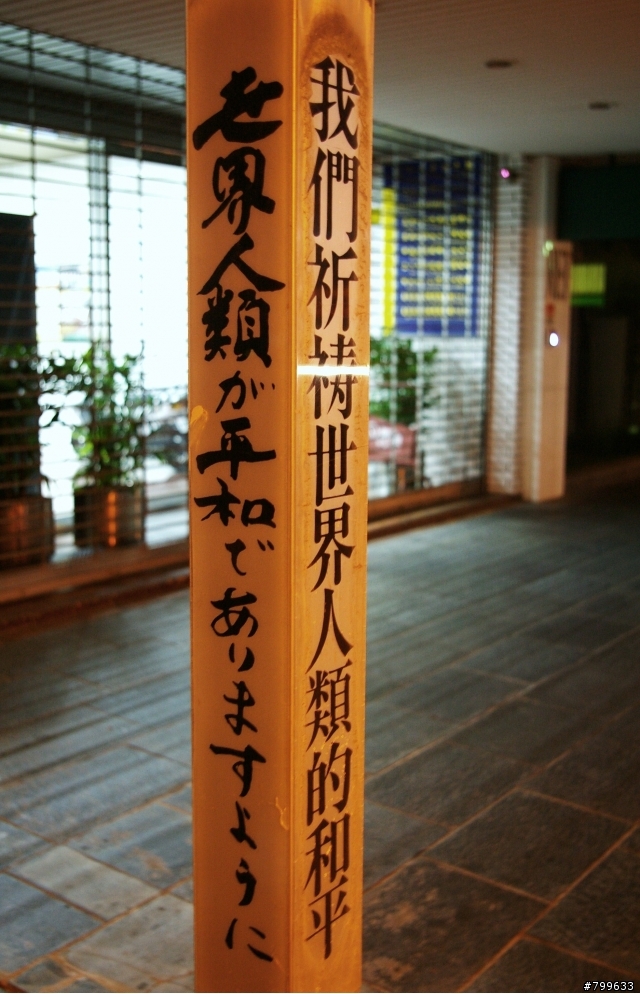 世界人類が平和でありますように
我們祈祷世界人類的和平
#799633